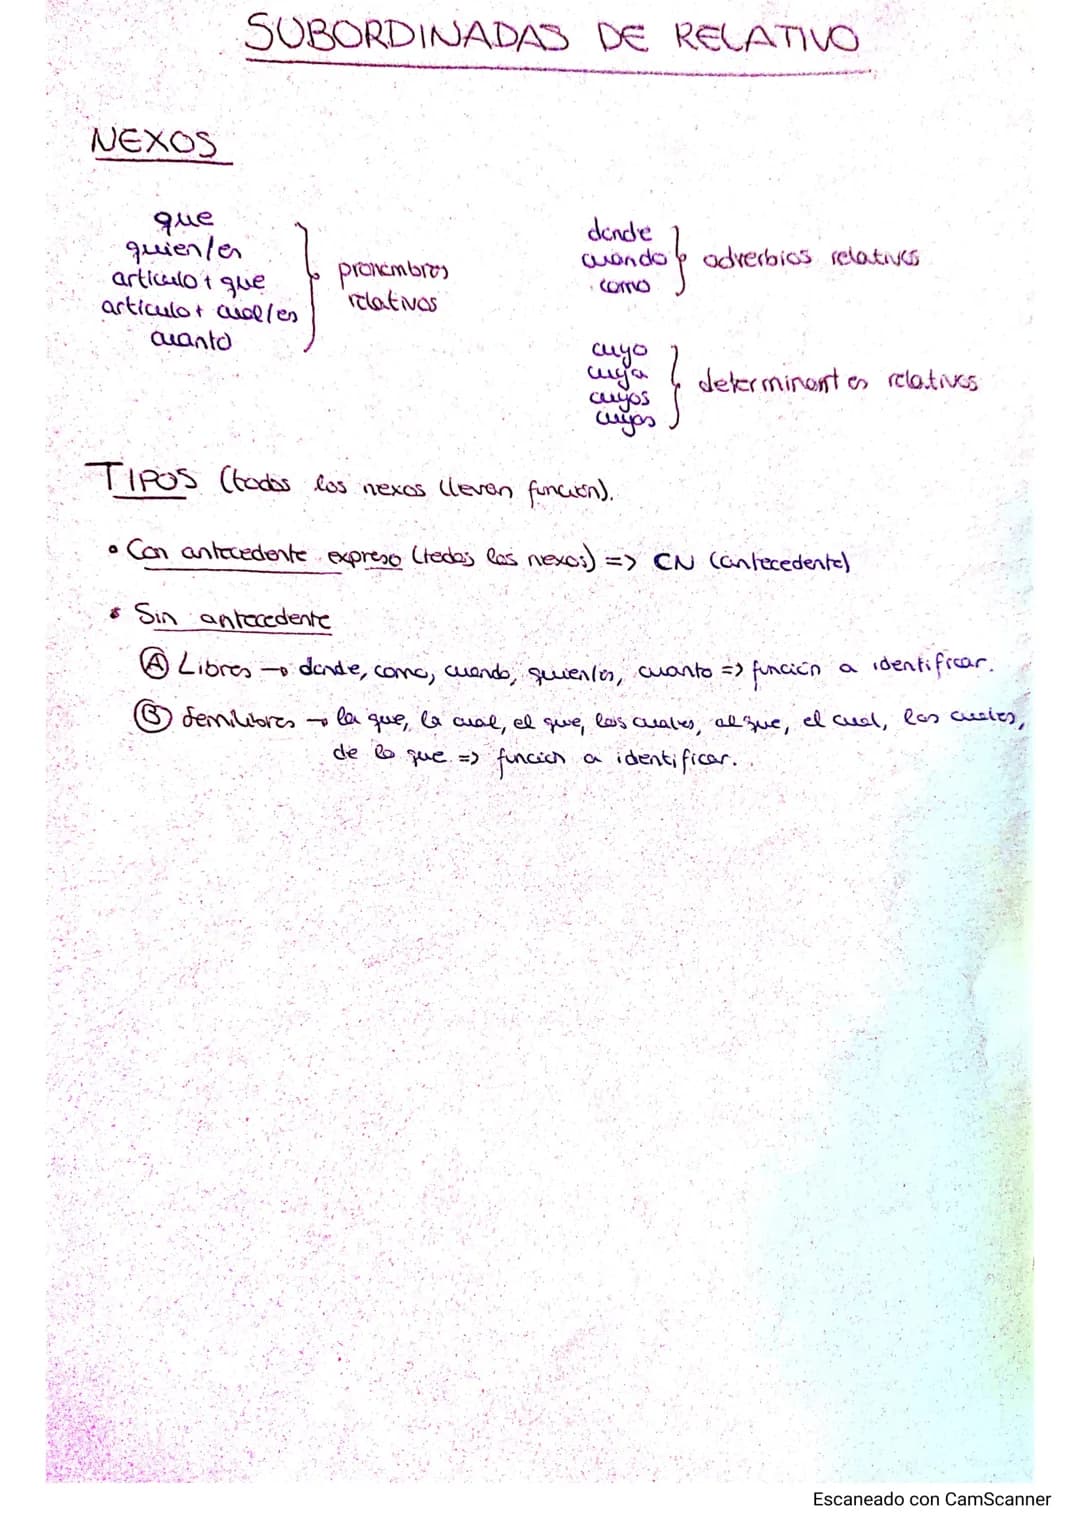 SUBORDINADAS DE RELATIVO
NEXOS
que
quien/es
artículo + que
artículo + cual/es
cuanto
pronombres
relativos
donde
cuando
como
adverbios relativos
cuyo
cuya
cuyos
cuyas
determinantes relativos
TIPOS (todos los nexos llevan función).
• Con antecedente expreso (todos los nexos) => CN (antecedente)
• Sin antecedente
Ⓐ Libres → donde, como, cuando, quien/es, cuanto => función a identificar.
Ⓑ Semilibres → la que, la cual, el que, los cuales, al que, el cual, las cuales,
de lo que => función a identificar.
Escaneado con CamScanner